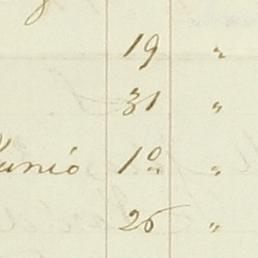 19 "
31 "
Junio 1º "
26 "